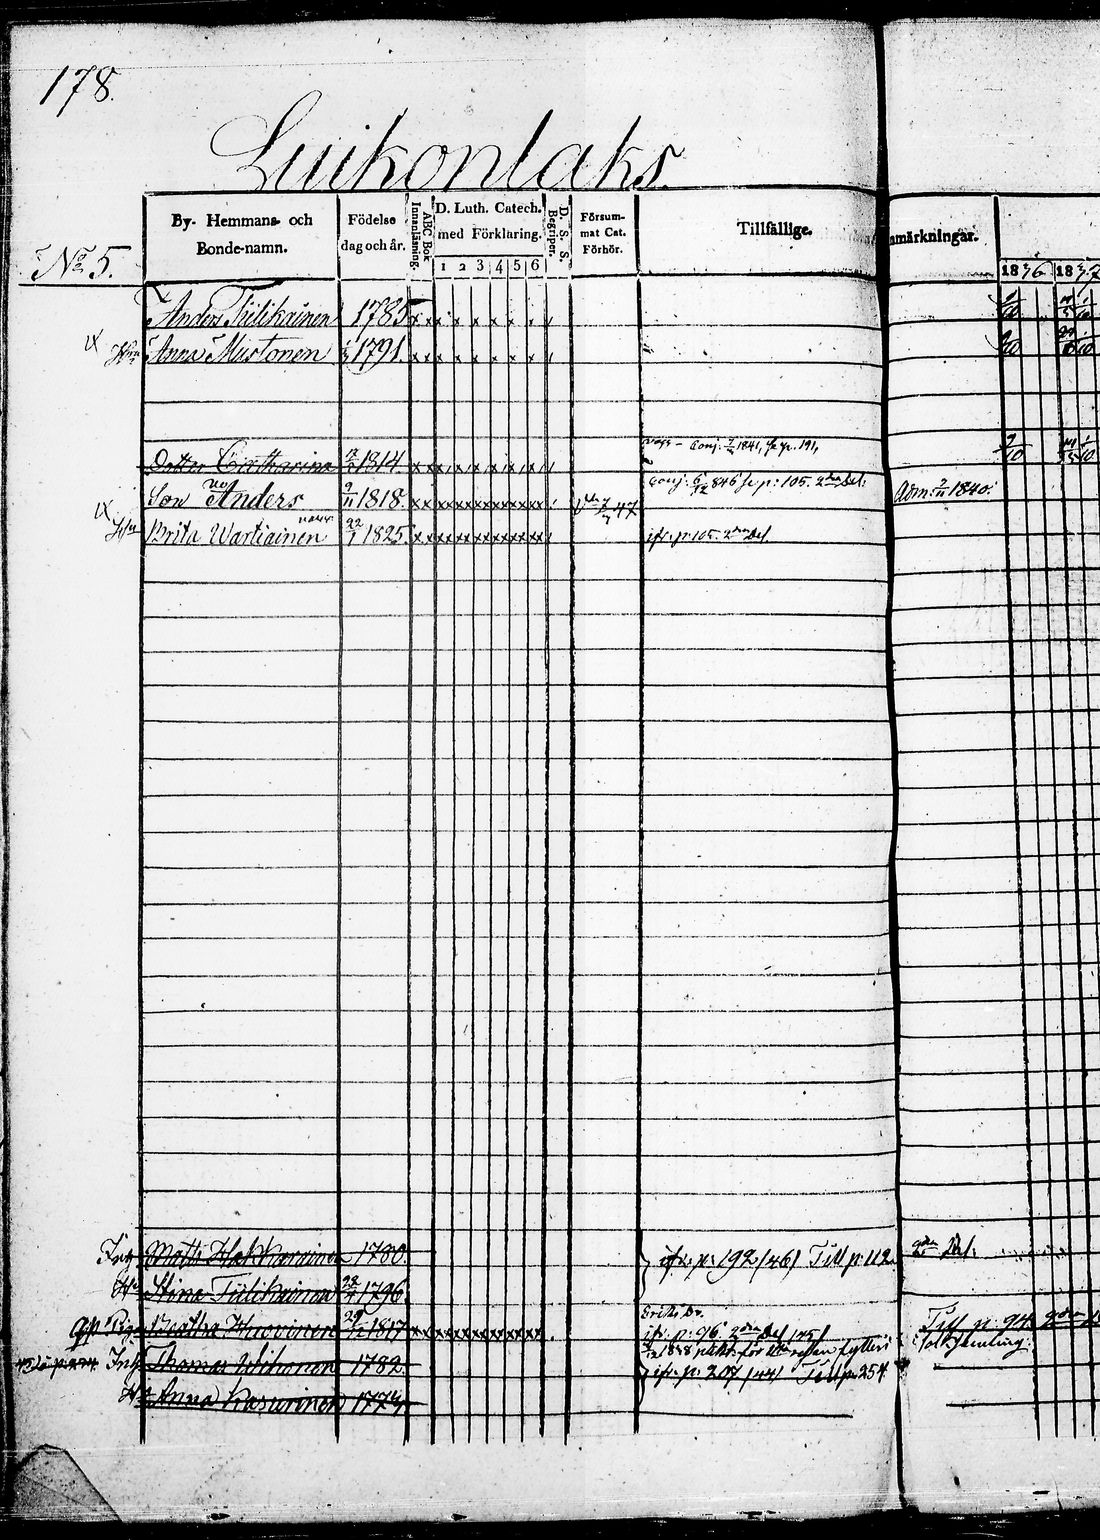 178.
Luikonlaks.
No 5.
By- Hemmans- och Bonde-namn.
Födelse dag och år.
ABC Bok Innanläsning.
D. Luth. Catech. med Förklaring.
1 2 3 4 5 6
D. S. S. Begriper.
Försummat Cat. Förhör.
Tillfällige.
nmärkningar.
1836 1837
Anders Tiilikainen 1785
Hu Anna Mustonen 1791.
Dotter Catharina 1814. conj. 1841, se p. 191,
Son Anders 9/11 1818. conj. 6/12 846 se p: 105. 2dra Del. Adm: 1840.
Hu Brita Wartiainen 22/1 1825. ifr. p. 105. 2dra Del.
Inh Matts Hakkarainen 1780. ifr. p. 192 /46/ Till p. 112 2dra Del.
Hu Stina Tiilikainen 1796.
Beatha Huovinen 1817 Eriks Dr. ifr. p. 96. 2dra Del /45/ Till p. 94. 2dra
Inh Thomas 1782. 1838 för fylleri i folksamling.
Hu Anna Kasurinen 1773. ifr. p. 207 /44/ Till p. 254